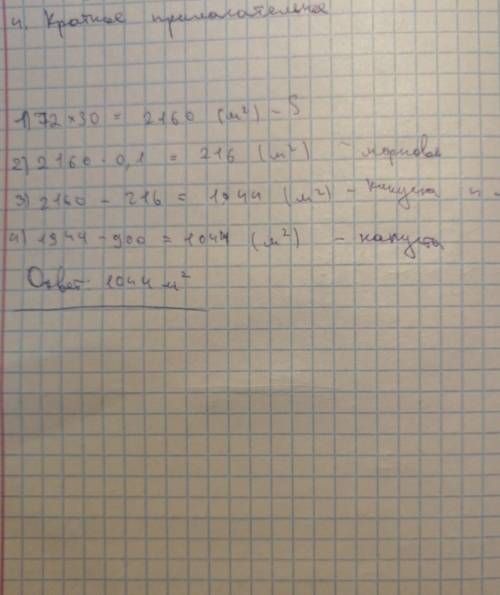 4. Краткое прилагательное
1) 72 × 30 = 2160 (м²) - S
2) 2160 · 0,1 = 216 (м²) - морковь
3) 2160 - 216 = 1944 (м²) - капуста и
4) 1944 - 900 = 1044 (м²) - капуста
Ответ: 1044 м²